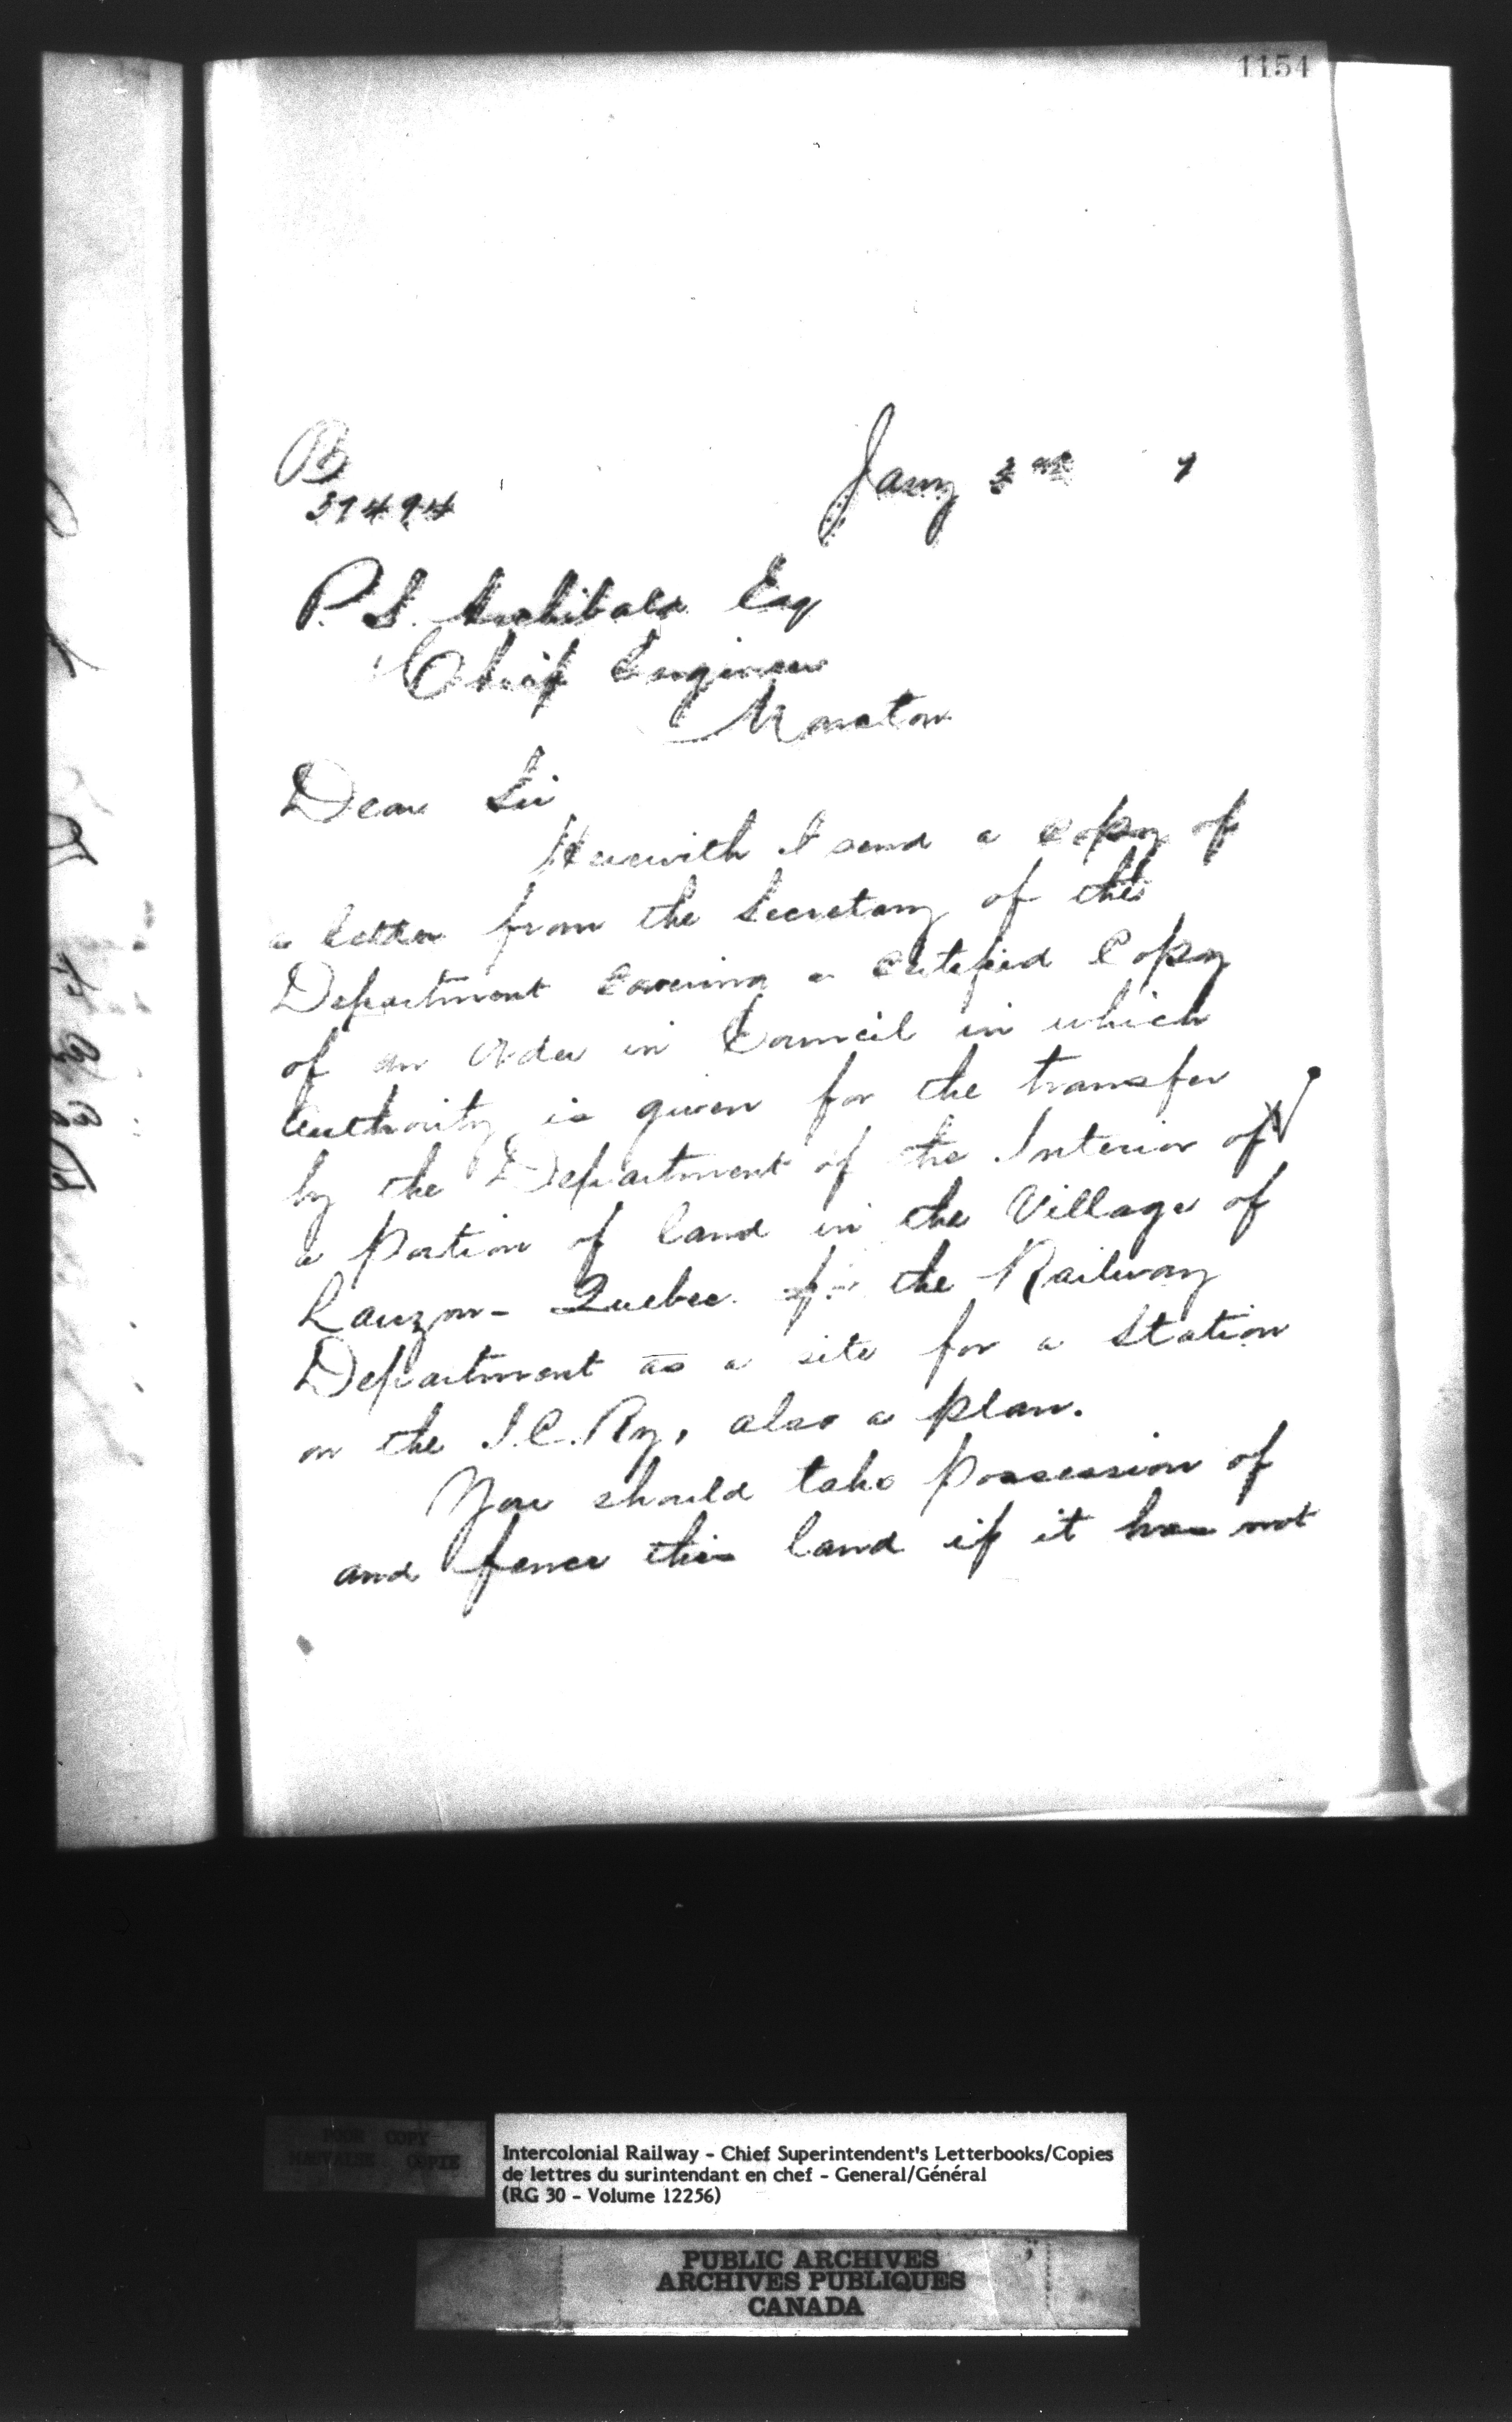 1154
B
37494
Jany 3rd 7
P. S. Archibald Esq
Chief Engineer
Moncton
Dear Sir
Herewith I send a copy of
a letter from the Secretary of the
Department covering a certified Copy
of an Order in Council in which
Authority is given for the transfer
by the Department of the Interior of
a Portion of land in the Village of
Lauzon - Quebec. to the Railway
Department as a site for a Station
on the I.C.Ry, also a plan.
You should take Possession of
and fence this land if it has not
POOR COPY
MAUVAISE COPIE
Intercolonial Railway - Chief Superintendent's Letterbooks/Copies
de lettres du surintendant en chef - General/Général
(RG 30 - Volume 12256)
PUBLIC ARCHIVES
ARCHIVES PUBLIQUES
CANADA